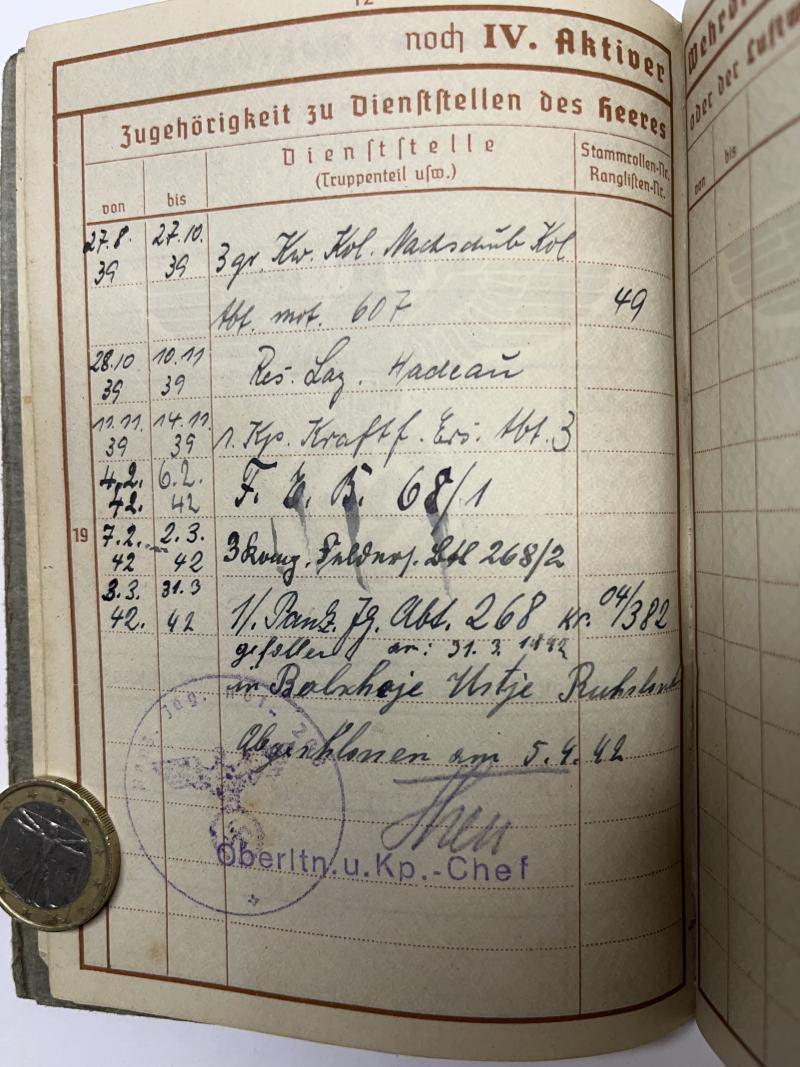 12
noch IV. Aktiver
Zugehörigkeit zu Dienststellen des Heeres
von
bis
Dienststelle
(Truppenteil usw.)
Stammrollen-Nr.
Ranglisten-Nr.
27.8. 39 27.10. 39 3 gr. Kw. Kol. Nachschub Kol
Abt. mot. 607 49
28.10 39 10.11 39 Res. Laz.
11.11. 39 14.11. 39 1. Kp. Kraftf. Ers. Abt. 3
4.2. 42. 6.2. 42 F. E. B. 68/1
19
7.2. 42 2.3. 42 3 Komp. Felders. Btl 268/2
3.3. 42. 31.3 42 1/. Panz. Jg. Abt. 268 Nr. 04/382
gefallen am: 31.3. 1942
in Bolschoje Ustje Ruhsland
Abgeschlossen am 5.4.42
Panz. Jäg. Abt. 268
Oberltn. u. Kp.-Chef
Wehrdi
oder der Luftw
von
bis